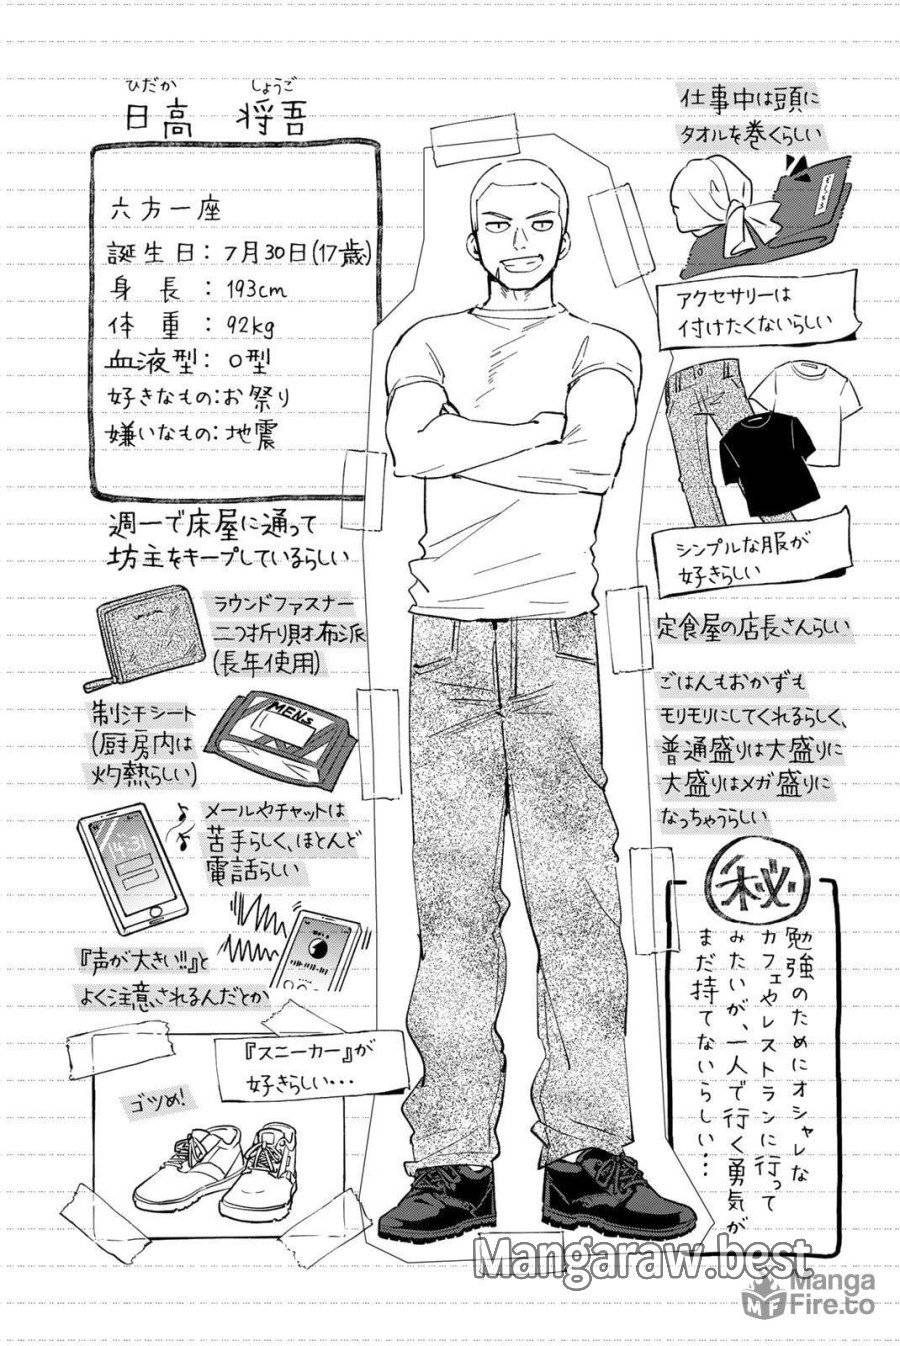 ひだか しょうご
日高 将吾
六方一座
誕生日:7月30日(17歳)
身長:193cm
体重:92kg
血液型:O型
好きなもの:お祭り
嫌いなもの:地震
週一で床屋に通って
坊主をキープしているらしい
ラウンドファスナー
二つ折り財布派
(長年使用)
制汗シート
(厨房内は
灼熱らしい)
MEN's
メールやチャットは
苦手らしく、ほとんど
電話らしい
14:31
『声が大きい!!』と
よく注意されるんだとか
『スニーカー』が
好きらしい・・・
ゴツめ!
仕事中は頭に
タオルを巻くらしい
アクセサリーは
付けたくないらしい
シンプルな服が
好きらしい
定食屋の店長さんらしい
ごはんもおかずも
モリモリにしてくれるらしく、
普通盛りは大盛りに
大盛りはメガ盛りに
なっちゃうらしい
秘
勉強のためにオシャレな
カフェやレストランに行って
みたいが、一人で行く勇気が
まだ持てないらしい・・・
Mangaraw.best
MF
Manga
Fire.to